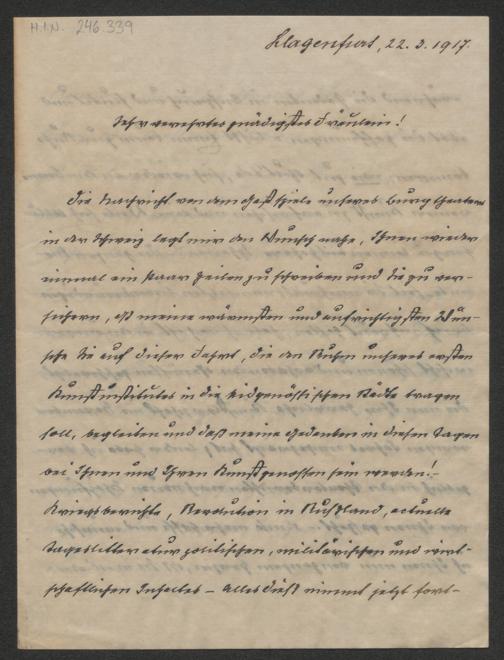 H.I.N. 246.339
Klagenfurt, 22.3.1917.
Sehr verehrtes gnädigstes Fräulein!
Die Nachricht von dem Gastspiele unseres Burgtheaters
in der Schweiz legt mir den Wunsch nahe, Ihnen wieder
einmal ein paar Zeilen zu schreiben und Sie zu ver-
sichern, daß meine wärmsten und aufrichtigsten Wün-
sche Sie auf dieser Fahrt, die den Ruhm unseres ersten
Kunstinstitutes in die eidgenössischen Städte tragen
soll, begleiten und daß meine Gedanken in diesen Tagen
bei Ihnen und Ihren Kunstgenossen sein werden!
Kriegsberichte, Revolution in Rußland, actuelle
Tageslitteratur politischen, militärischen und wirt-
schaftlichen Inhaltes – alles dieß nimmt jetzt fort-